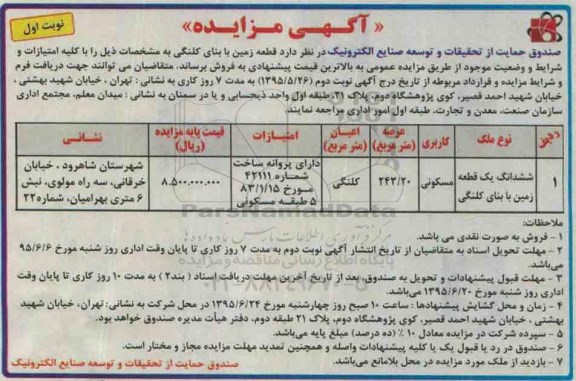 « آگهی مزایده»
نوبت اول
صندوق حمایت از تحقیقات و توسعه صنایع الکترونیک در نظر دارد قطعه زمین با بنای کلنگی به مشخصات ذیل را با کلیه امتیازات و
شرایط و وضعیت موجود از طریق مزایده عمومی به بالاترین قیمت پیشنهادی به فروش برساند. متقاضیان می توانند جهت دریافت فرم
و شرایط مزایده و قرارداد مربوطه از تاریخ درج آگهی نوبت دوم (۱۳۹۵/۵/۲۶) به مدت ۷ روز کاری به نشانی : تهران ، خیابان شهید بهشتی ،
خیابان شهید احمد قصیر، کوی پژوهشگاه دوم، پلاک ۲۱ طبقه اول واحد ذیحسابی و یا در سمنان به نشانی : میدان معلم، مجتمع اداری
سازمان صنعت، معدن و تجارت، طبقه اول امور اداری مراجعه نمایند.
ردیف نوع ملک کاربری عرصه (متر مربع) اعیان (متر مربع) امتیازات قیمت پایه مزایده (ریال) نشانی
۱ ششدانگ یک قطعه زمین با بنای کلنگی مسکونی ۲۴۳/۲۰ کلنگی دارای پروانه ساخت شماره ۴۲۱۱۱ مورخ ۸۳/۱/۱۵ ۵ طبقه مسکونی ۸.۵۰۰.۰۰۰.۰۰۰ شهرستان شاهرود ، خیابان خرقانی، سه راه مولوی، نبش ۶ متری بهرامیان، شماره ۲۲
ParsNamadData
پایگاه اطلاع رسانی مناقصه و مزایده
ملاحظات:
۱- فروش به صورت نقدی می باشد.
۲- مهلت تحویل اسناد به متقاضیان از تاریخ انتشار آگهی نوبت دوم به مدت ۷ روز کاری تا پایان وقت اداری روز شنبه مورخ ۹۵/۶/۶
می‌باشد.
۳- مهلت قبول پیشنهادات و تحویل به صندوق، بعد از تاریخ آخرین مهلت دریافت اسناد ( بند۲ ) به مدت ۱۰ روز کاری تا پایان وقت
اداری روز شنبه مورخ ۱۳۹۵/۶/۲۰ می‌باشد.
۴- زمان و محل گشایش پیشنهادها : ساعت ۱۰ صبح روز چهارشنبه مورخ ۱۳۹۵/۶/۲۴ در محل شرکت به نشانی: تهران، خیابان شهید
بهشتی ، خیابان شهید احمد قصیر، کوی پژوهشگاه دوم، پلاک ۲۱ طبقه دوم، دفتر هیأت مدیره صندوق خواهد بود.
۵- سپرده شرکت در مزایده معادل ۱۰٪ (ده درصد) مبلغ پایه می‌باشد.
۶- صندوق در رد یا قبول یک یا کلیه پیشنهادات واصله و همچنین تمدید مهلت مزایده مجاز و مختار است.
۷- بازدید از ملک مورد مزایده در محل بلامانع می‌باشد.
صندوق حمایت از تحقیقات و توسعه صنایع الکترونیک